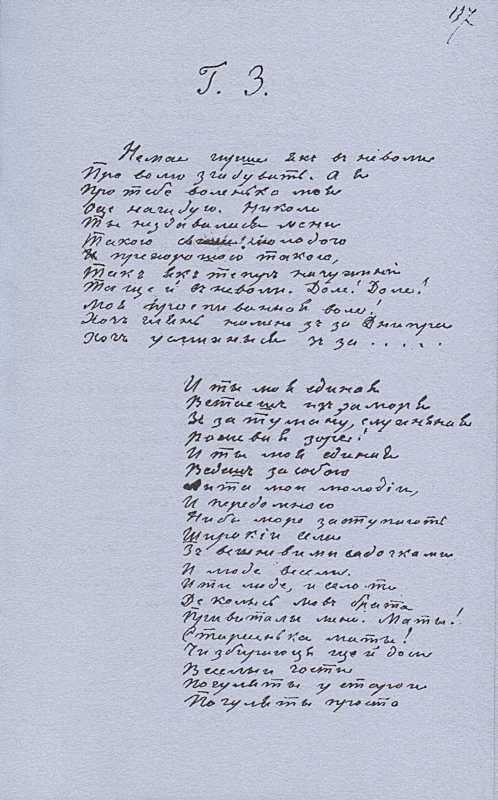 137
Г. З.
Немае гирше якъ въ неволи
Про волю згадувать. А я
Про тебе воленько моя
Оце нагадую. Николи
Ты не здавалася мени
Такою молодою
И прехорошою такою,
Такъ якъ теперъ на чужини
Та ще й въ неволи. Доле! Доле!
Моя проспиваная воле!
Хочъ глянь на мене зъ за Днипра
Хочъ усмихныся зъ за . . . . .
И ты моя единая
Встаешъ изъ за моря
Зъ за туману, слухняная
Рожевая зоре!
И ты моя единая
Ведешъ за собою
Лита мои молодіи,
И передомною
Ниби море заступають
Широкіи села
Зъ вишневими садочками
И люде весели.
И ти люде, и село те
Де колысь мовъ брата
Привитали мене. Маты!
Старенька маты!
Чи збираюця ще й доси
Веселыи гости
Погуляты у старои
Погуляты просто